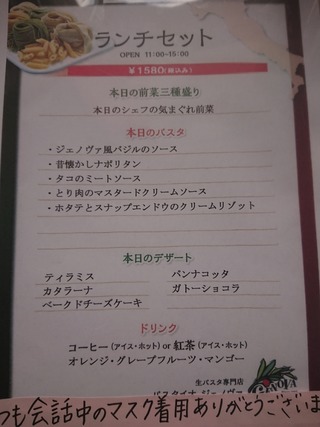 ランチセット
OPEN 11:00-15:00
¥1580(税込み)
本日の前菜三種盛り
本日のシェフの気まぐれ前菜
本日のパスタ
・ジェノヴァ風バジルのソース
・昔懐かしナポリタン
・タコのミートソース
・とり肉のマスタードクリームソース
・ホタテとスナップエンドウのクリームリゾット
本日のデザート
ティラミス パンナコッタ
カタラーナ ガトーショコラ
ベークドチーズケーキ
ドリンク
コーヒー(アイス・ホット) or 紅茶(アイス・ホット)
オレンジ・グレープフルーツ・マンゴー
生パスタ専門店
GENOVA
つも会話中のマスク着用ありがとうございま